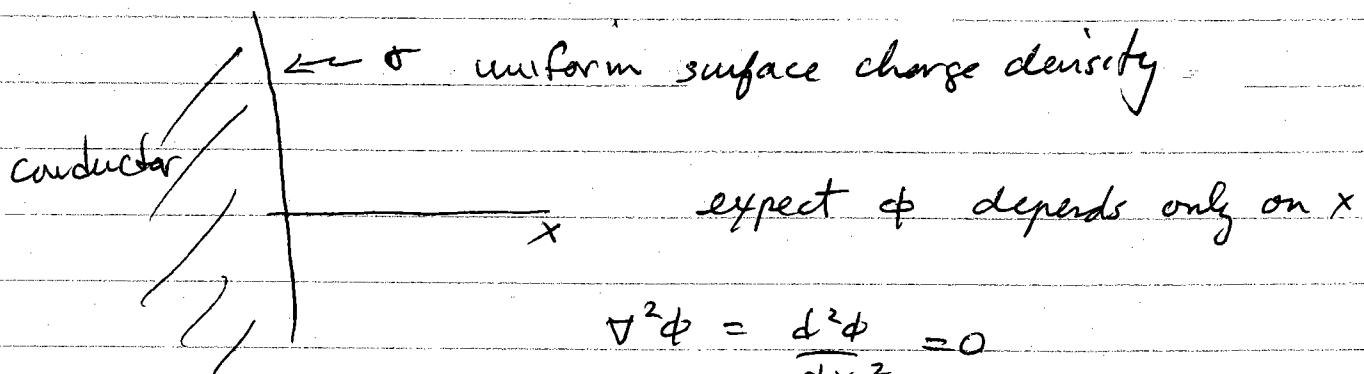 ← σ uniform surface charge density
conductor
x
expect φ depends only on x
∇²φ = d²φ/dx² = 0